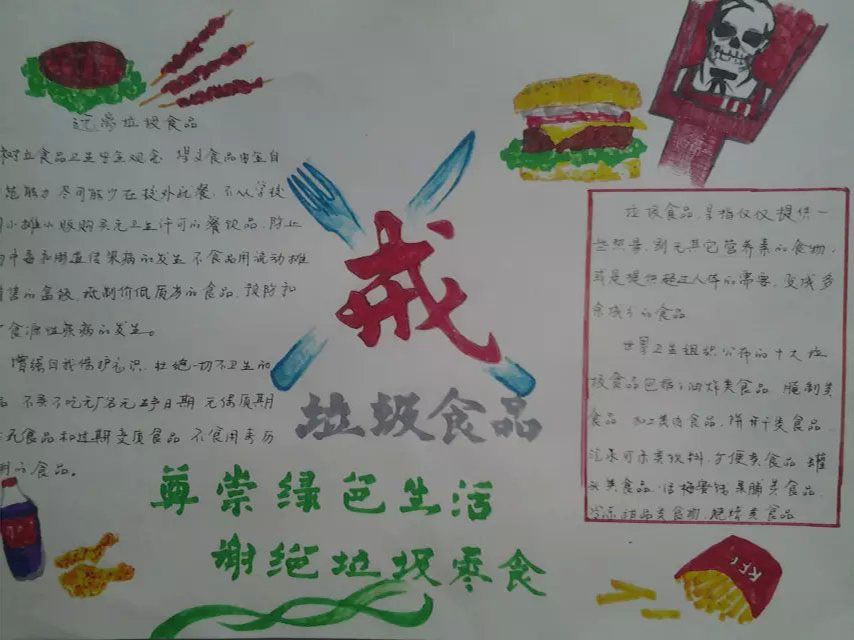 远离垃圾食品
树立食品卫生安全观念 增义食品安全自
尽可能少在校外就餐 不从学校
小摊小贩购买无卫生许可的餐饮品 防止
中毒和肠道传染病的发生 不食用流动摊
售的盒饭 抵制价低质劣的食品 预防和
食源性疾病的发生。
增强自我保护意识 杜绝一切不卫生的
不买不吃无厂名无生产日期 无保质期
食品和过期变质食品 不食用
的食品。
戒
垃圾食品
尊崇绿色生活
谢绝垃圾零食
垃圾食品 是指仅仅提供一
些热量 别无其它营养素的食物
或是提供超过人体的需要 变成多
余成分的食品
世界卫生组织公布的十大垃
圾食品包括:油炸类食品 腌制类
食品 加工类肉食品 饼干类食品
汽水可乐类饮料 方便类食品 罐
头类食品 话梅蜜饯果脯类食品
冷冻甜品类食物 烧烤类食品
KFC